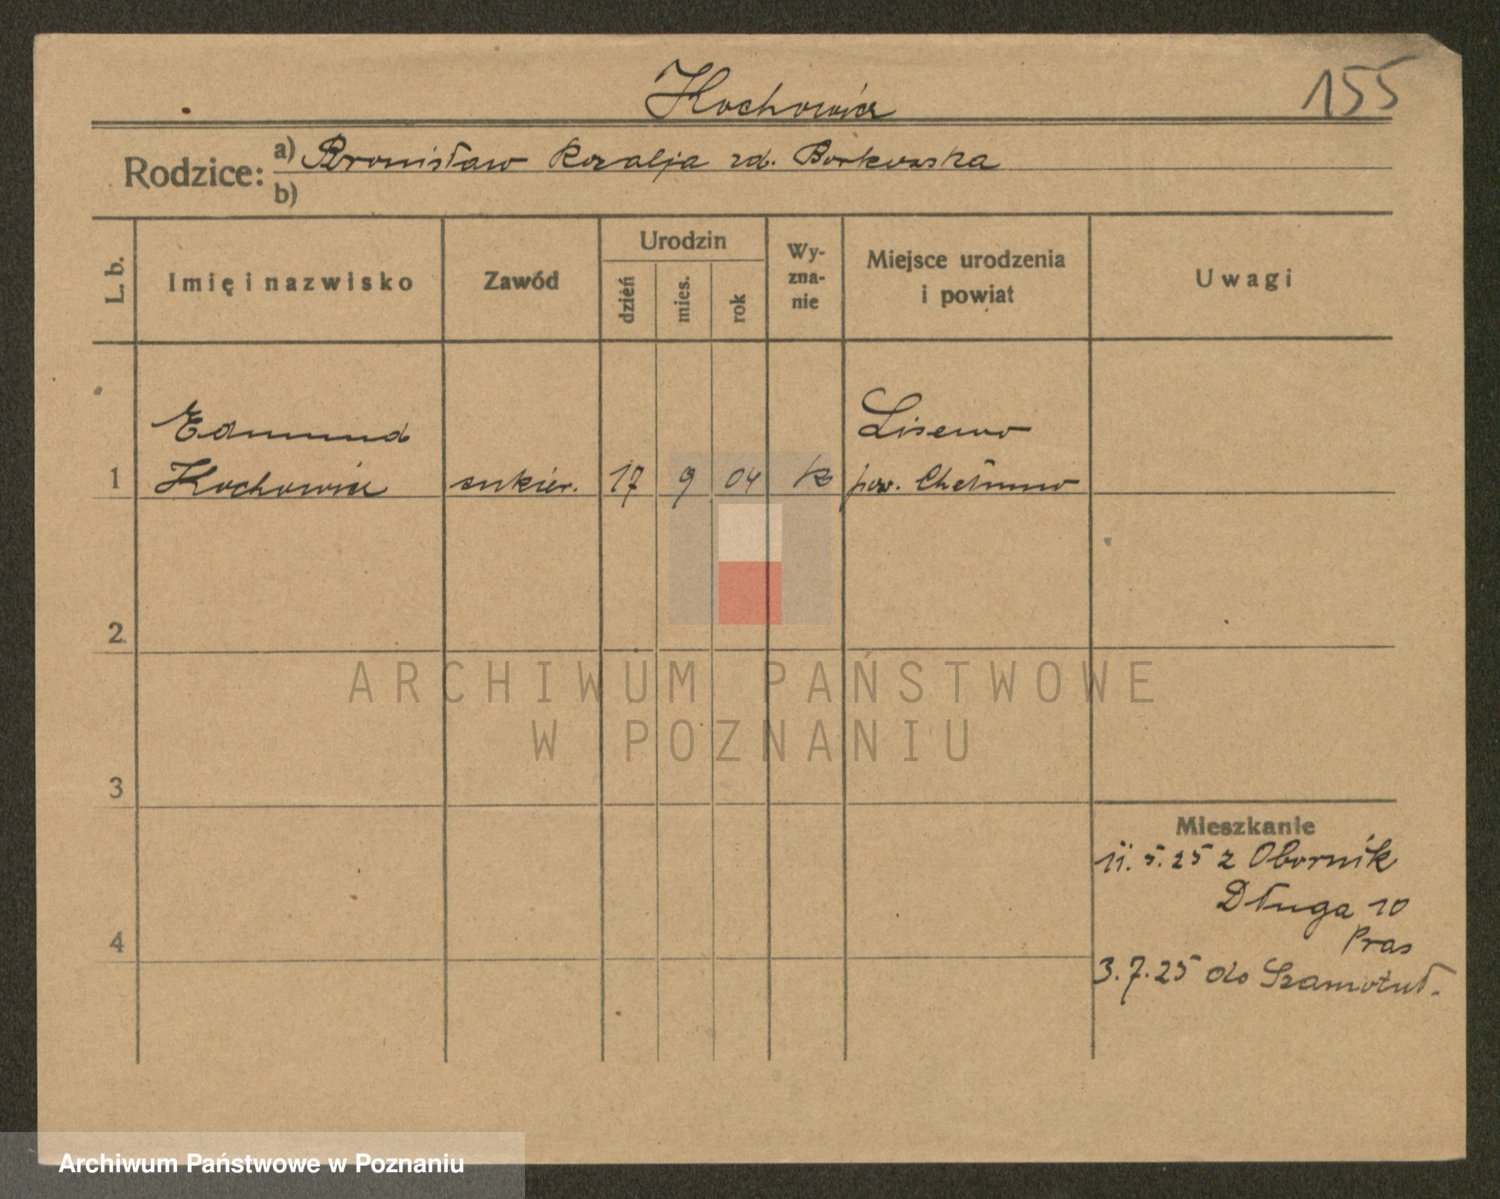 155
Kochowicz
Rodzice: a) Bronisław Rozalja zd. Borkowska
b)
L. b.
Imię i nazwisko
Zawód
Urodzin
dzień
mies.
rok
Wy-
zna-
nie
Miejsce urodzenia
i powiat
Uwagi
Edmund
Lisewo
1 Kochowicz cukier. 17 9 04 k pow. Chełmno
2
ARCHIWUM PAŃSTWOWE
W POZNANIU
3
Mieszkanie
11.5.25 z Obornik
Długa 10
Pras
4
3.7.25 do Szamotuł.
Archiwum Państwowe w Poznaniu